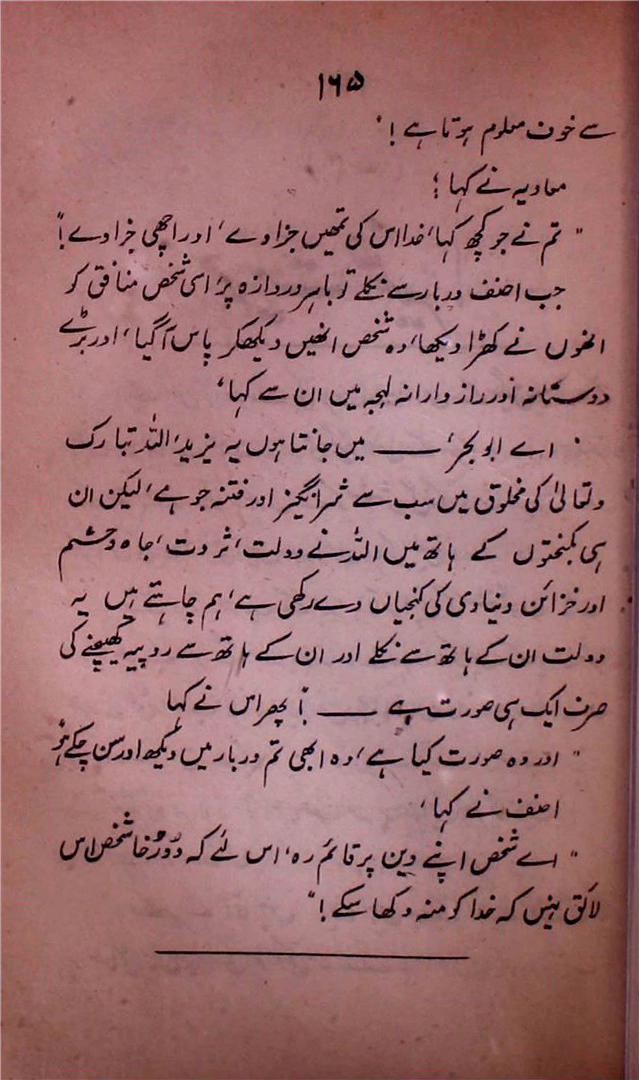 ۱۶۵
سے خوف معلوم ہوتا ہے !"
معاویہ نے کہا ؛
" تم نے جو کچھ کہا، خدا اس کی تمھیں جزا دے، اور اچھی جزا دے !"
جب احنف دربار سے نکلے تو باہر دروازہ پر، اسی شخص منافق کو
انھوں نے کھڑا دیکھا، وہ شخص انھیں دیکھکر پاس آگیا، اور بڑے
دوستانہ اور رازدارانہ لہجہ میں ان سے کہا،
" اے ابو بحر، ــــــ میں جانتا ہوں یہ یزید، اللہ تبارک
وتعالیٰ کی مخلوق میں سب سے شرانگیز اور فتنہ جو ہے، لیکن ان
ہی کمبختوں کے ہاتھ میں اللہ نے دولت، ثروت، جاہ و حشم
اور خزائن دنیاوی کی کنجیاں دے رکھی ہے، ہم چاہتے ہیں یہ
دولت ان کے ہاتھ سے نکلے اور ان کے ہاتھ سے روپیہ کھینچنے کی
صرف ایک ہی صورت ہے ــــــ !" پھر اس نے کہا
" اور وہ صورت کیا ہے، وہ ابھی تم دربار میں دیکھ اور سن چکے ہو"
احنف نے کہا،
" اے شخص اپنے دین پر قائم رہ، اس لئے کہ دورخا شخص اس
لائق نہیں کہ خدا کو منہ دکھا سکے !"